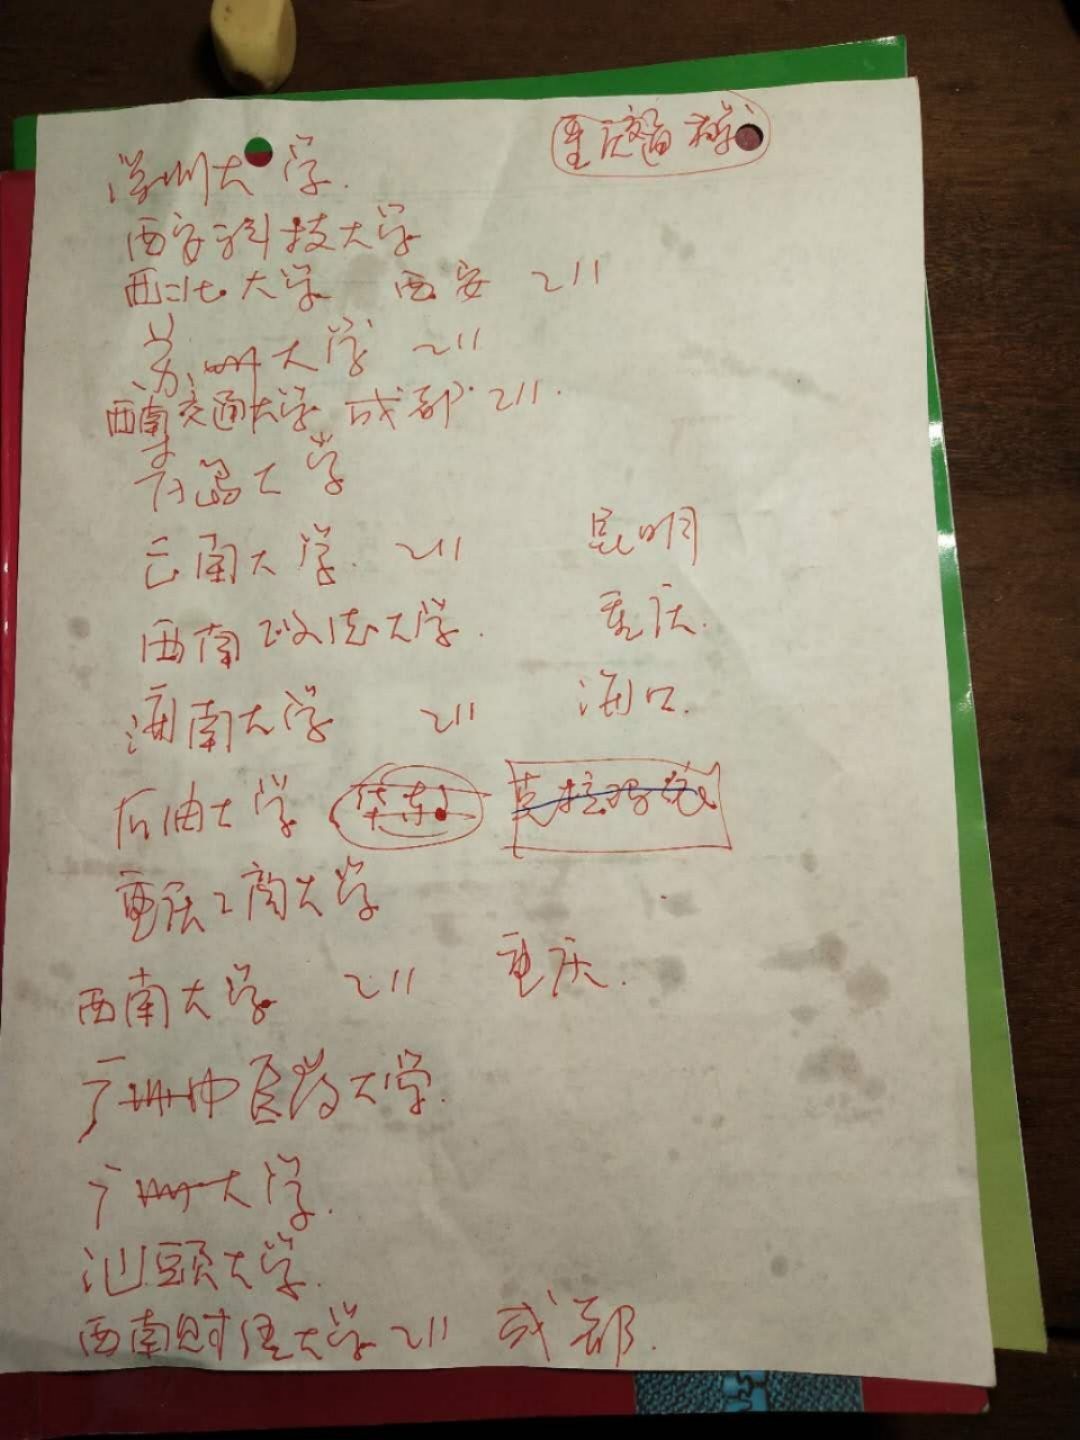 深圳大学. 重庆交通大学
西安科技大学
西北大学 西安 211
苏州大学 211
西南交通大学 成都 211.
青岛大学
云南大学. 211 昆明
西南政法大学. 重庆.
海南大学 211 海口.
石油大学 华东 克拉玛依
重庆工商大学
西南大学 211 重庆.
广州中医药大学.
广州大学.
汕頭大学.
西南财经大学 211 成都.